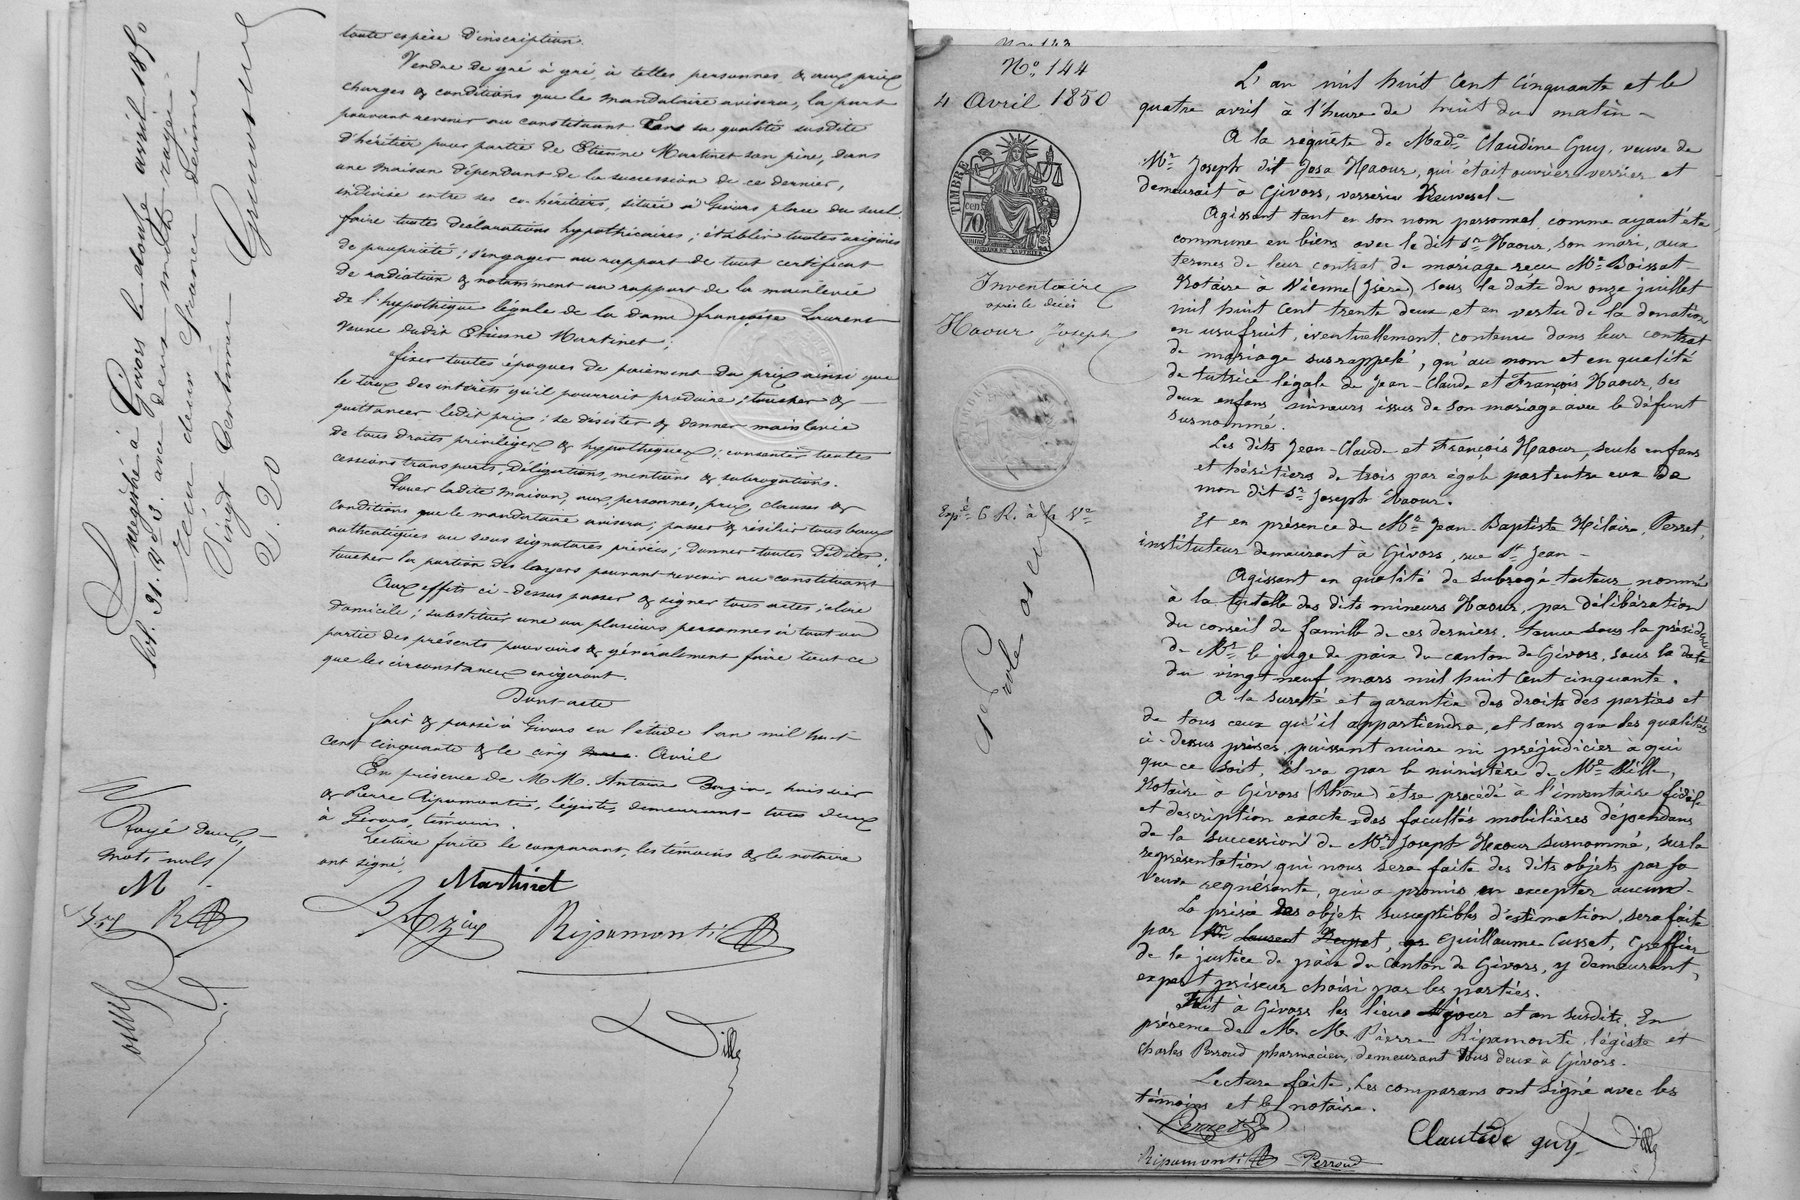 toute espèce d'inscription.
Vendre de gré à gré, à telles personnes, & aux prix
charges & conditions que le mandataire avisera, la part
pouvant revenir au constituant en sa qualité susdite
d'héritier pour partie de Etienne Martinet son père, dans
une maison dépendant de la succession de ce dernier,
indivise entre ses co-héritiers, située à Givors place du
faire toutes déclarations hypothécaires; établir toutes origines
de propriété; s'engager au rapport de tout certificat
de radiation & notamment au rapport de la mainlevée
de l'hypothèque légale de la dame françoise Laurent
veuve dudit Etienne Martinet;
fixer toutes époques de paiement du prix ainsi que
le taux des intérêts qu'il pourrait produire; toucher &
quittancer ledit prix; se désister & donner mainlevée
de tous droits privilégiés & hypothèques; consentir toutes
cessions transports, délégations, mentions & subrogations.
Louer ladite maison, aux personnes, prix, clauses &
conditions que le mandataire avisera; passer & résilier tous baux
authentiques ou sous signatures privées; donner toutes dédites;
toucher la portion des loyers pouvant revenir au constituant
Aux effets ci-dessus passer & signer tous actes; élire
domicile; substituer une ou plusieurs personnes à tout ou
partie des présents pouvoirs & généralement faire tout ce
que les circonstances exigeront.
Dont acte
fait & passé à Givors en l'étude l'an mil huit
cent cinquante & le cinq Avril
En présence de M.M. Antoine huissier
& Pierre Ripamonti, légiste, demeurant tous deux
à Givors, témoins.
Lecture faite le comparant, les témoins & le notaire
ont signé.
Martinet
Ripamonti
Dille
Enregistré à Givors le douze avril 1850
fol. 91. R. C. 3. avec deux mots rayés.
Reçu deux francs décime
Vingt Centimes
2. 20
Rayé deux
mots nuls
M
R
Nº 143
Nº 144
4 Avril 1850
TIMBRE
70
cen
Inventaire
après le décès
Haour Joseph
L'an mil huit cent cinquante et le
quatre avril à l'heure de huit du matin -
A la requête de Made Claudine Guy, veuve de
Mr Joseph dit Josa Haour, qui était ouvrier verrier et
demeurait à Givors, verrerie Neuvesel -
Agissant tant en son nom personnel comme ayant été
commune en biens avec le dit Sr Haour, son mari, aux
termes de leur contrat de mariage reçu Me Boissat
Notaire à Vienne (Isère) sous la date du onze juillet
mil huit cent trente deux, et en vertu de la donation
en usufruit, éventuellement, contenue dans leur contrat
de mariage susrappelé, qu'au nom et en qualité
de tutrice légale de Jean-Claude et François Haour, ses
deux enfans, mineurs issus de son mariage avec le défunt
susnommé.
Les dits Jean-Claude et François Haour, seuls enfans
et héritiers de trois par égale part entre eux de
mon dit Sr Joseph Haour.
Et en présence de Mr Jean-Baptiste Hilaire Perret,
instituteur demeurant à Givors, rue St Jean -
Agissant en qualité de subrogé tuteur, nommé
à la tutelle des dits mineurs Haour, par délibération
du conseil de famille de ces derniers, tenue sous la présidence
de Mr le juge de paix du canton de Givors, sous la date
du vingt neuf mars mil huit cent cinquante.
A la sureté et garantie des droits des parties et
de tous ceux qu'il appartiendra, et sans que les qualités
ci-dessus prises, puissent nuire ni préjudicier à qui
que ce soit, il va par le ministère de Me Dille,
Notaire à Givors (Rhône) être procédé à l'inventaire fidèle
et description exacte des facultés mobilières dépendans
de la succession de Mr Joseph Haour susnommé, sur la
représentation qui nous sera faite des dits objets par la
veuve requérante, qui a promis en excepter aucuns.
La prisée des objets susceptibles d'estimation, sera faite
par Mr Laurent Guillaume Cusset, greffier
de la justice de paix du canton de Givors, y demeurant,
expert priseur choisi par les parties.
Fait à Givors les lieu jour et an susdits. En
présence de M. M. Pierre Ripamonti, légiste et
Charles Perroud pharmacien, demeurant tous deux à Givors.
Lecture faite, les comparans ont signé avec les
témoins et le notaire.
Perret
Claudine guy
Dille
Ripamonti
Perroud